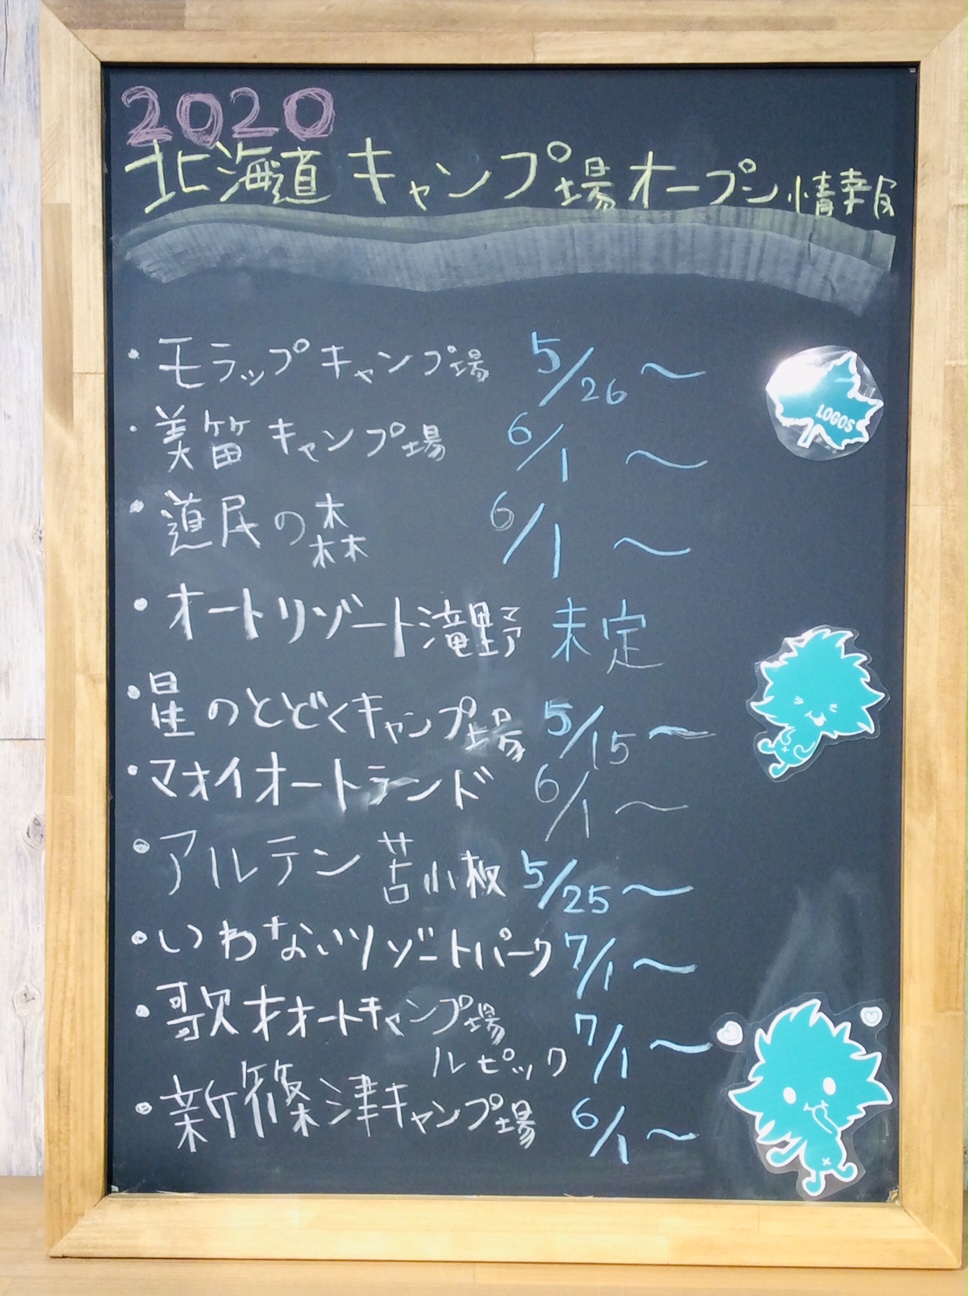 2020
北海道キャンプ場オープン情報
・モラップキャンプ場 5/26〜
・美笛キャンプ場 6/1〜
・道民の森 6/1〜
・オートリゾート滝野 未定
・星のとどくキャンプ場 5/15〜
・マオイオートランド 6/1〜
・アルテン苫小牧 5/25〜
・いわないリゾートパーク 7/1〜
・歌才オートキャンプ場 7/1〜
ルピック
・新篠津キャンプ場 6/1〜
LOGOS